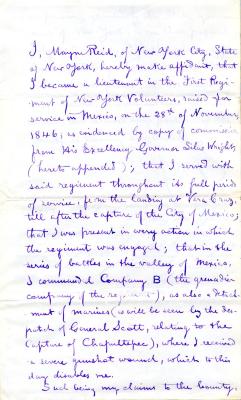 I, Mayne Reid, of New York City, State
of New York, hereby make affidavit, that
I became a lieutenant in the First Regi-
ment of New York Volunteers, raised for
service in Mexico, on the 28th of November
1846, as evidenced by copy of commission
from His Excellency Governor Silas Wright,
(hereto appended); that I served with
said regiment throughout its full period
of service, from the landing at Vera Cruz,
till after the capture of the City of Mexico;
that I was present in every action in which
the regiment was engaged; that in the
series of battles in the valley of Mexico,
I commanded Company B (the grenadier
company of the regiment), as also a detach-
ment of marines (as will be seen by the des-
patch of General Scott, relating to the
Capture of Chapultepec), where I received
a severe gunshot wound, which to this
day disables me.
Such being my claims to the bounty,